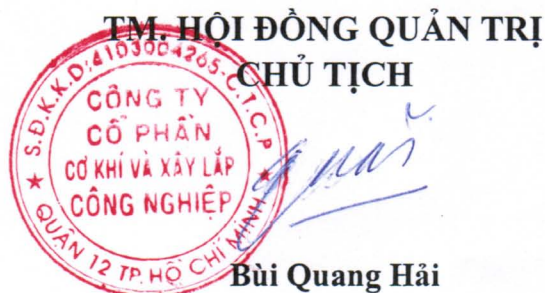 TM. HỘI ĐỒNG QUẢN TRỊ
CHỦ TỊCH
S.Đ.K.K.D:4103004265-C.T.C.P
CÔNG TY
CỔ PHẦN
CƠ KHÍ VÀ XÂY LẮP
CÔNG NGHIỆP
QUẬN 12 TP. HỒ CHÍ MINH
Bùi Quang Hải